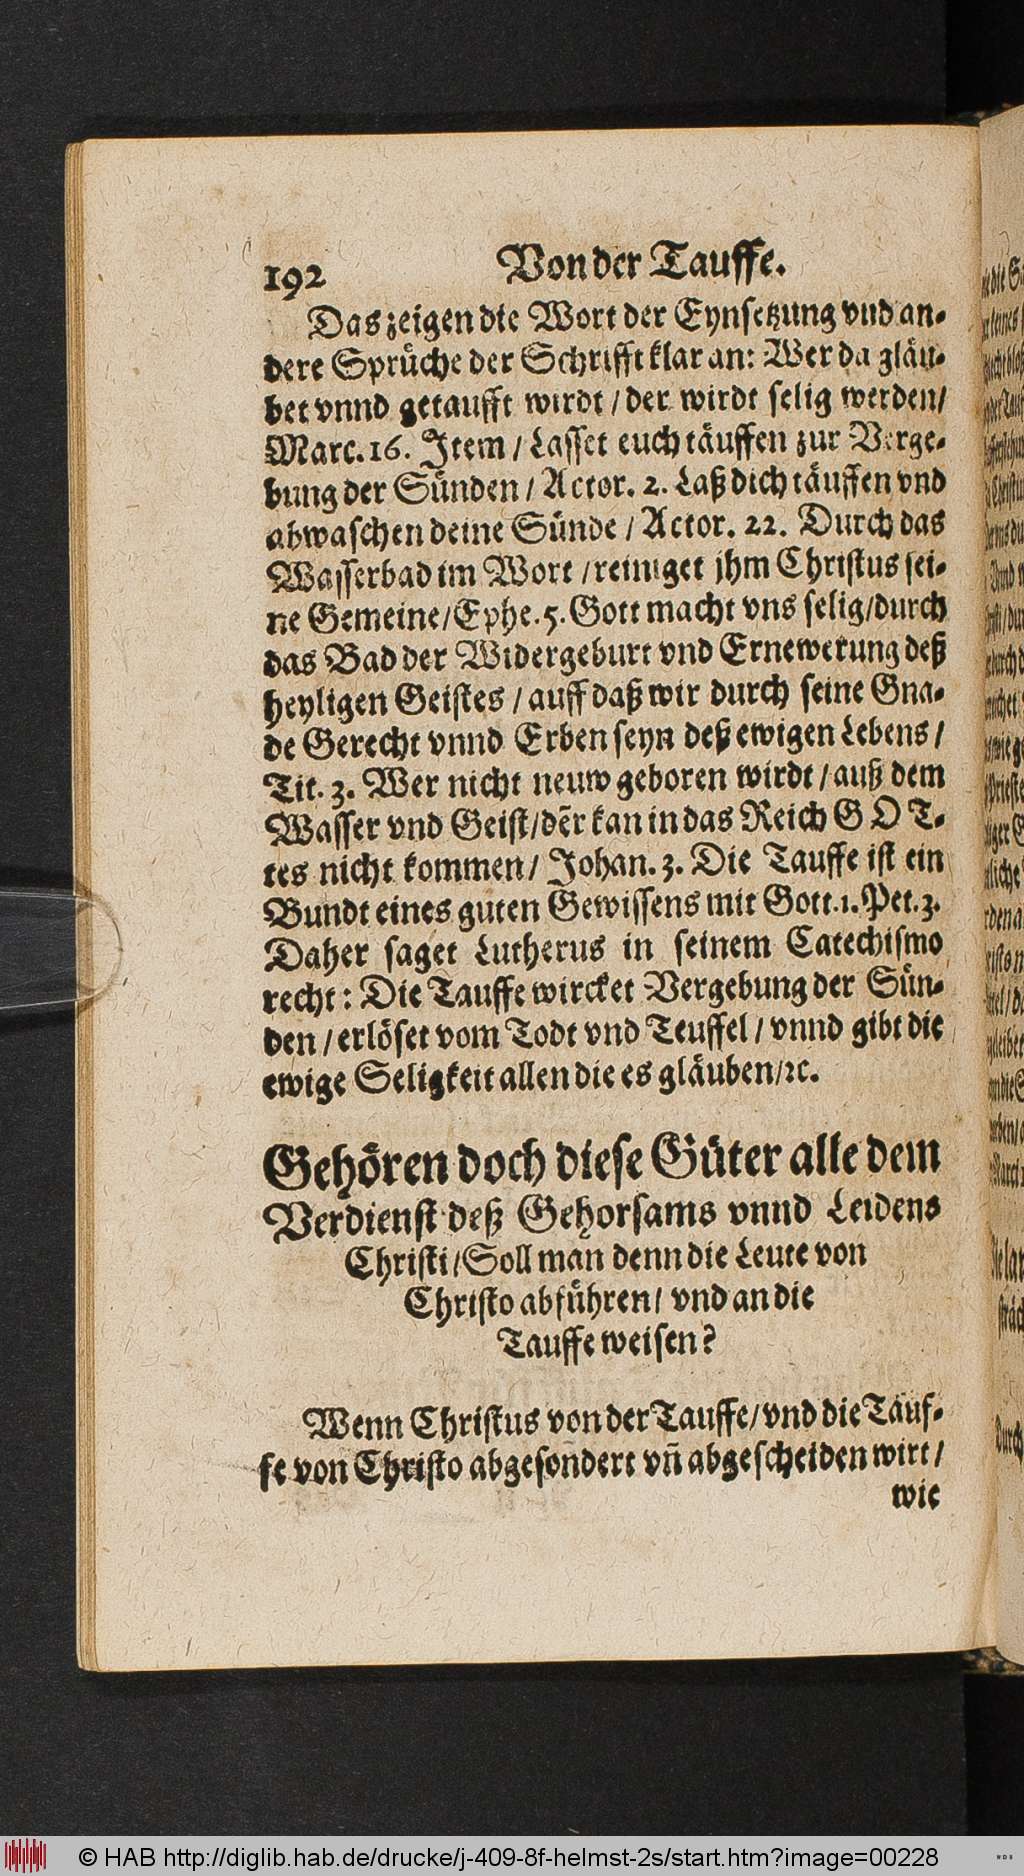 192 Von der Tauffe.
Das zeigen die Wort der Eynsetzung vnd an-
dere Sprüche der Schrifft klar an: Wer da gläu-
bet vnnd getaufft wirdt / der wirdt selig werden /
Marc. 16. Item / Lasset euch täuffen zur Verge-
bung der Sünden / Actor. 2. Laß dich täuffen vnd
abwaschen deine Sünde / Actor. 22. Durch das
Wasserbad im Wort / reiniget jhm Christus sei-
ne Gemeine / Ephe. 5. Gott macht vns selig / durch
das Bad der Widergeburt vnd Ernewerung deß
heyligen Geistes / auff daß wir durch seine Gna-
de Gerecht vnnd Erben seyn deß ewigen Lebens /
Tit. 3. Wer nicht neuw geboren wirdt / auß dem
Wasser vnd Geist / dēr kan in das Reich GOT-
tes nicht kommen / Johan. 3. Die Tauffe ist ein
Bundt eines guten Gewissens mit Gott. 1. Pet. 3.
Daher saget Lutherus in seinem Catechismo
recht: Die Tauffe wircket Vergebung der Sün-
den / erlöset vom Todt vnd Teuffel / vnnd gibt die
ewige Seligkeit allen die es gläuben / ꝛc.
Gehören doch diese Güter alle dem
Verdienst deß Gehorsams vnnd Leidens
Christi / Soll man denn die Leute von
Christo abführen / vnd an die
Tauffe weisen?
Wenn Christus von der Tauffe / vnd die Tauf-
fe von Christo abgesondert vn̄ abgescheiden wirt /
wie
© HAB http://diglib.hab.de/drucke/j-409-8f-helmst-2s/start.htm?image=00228